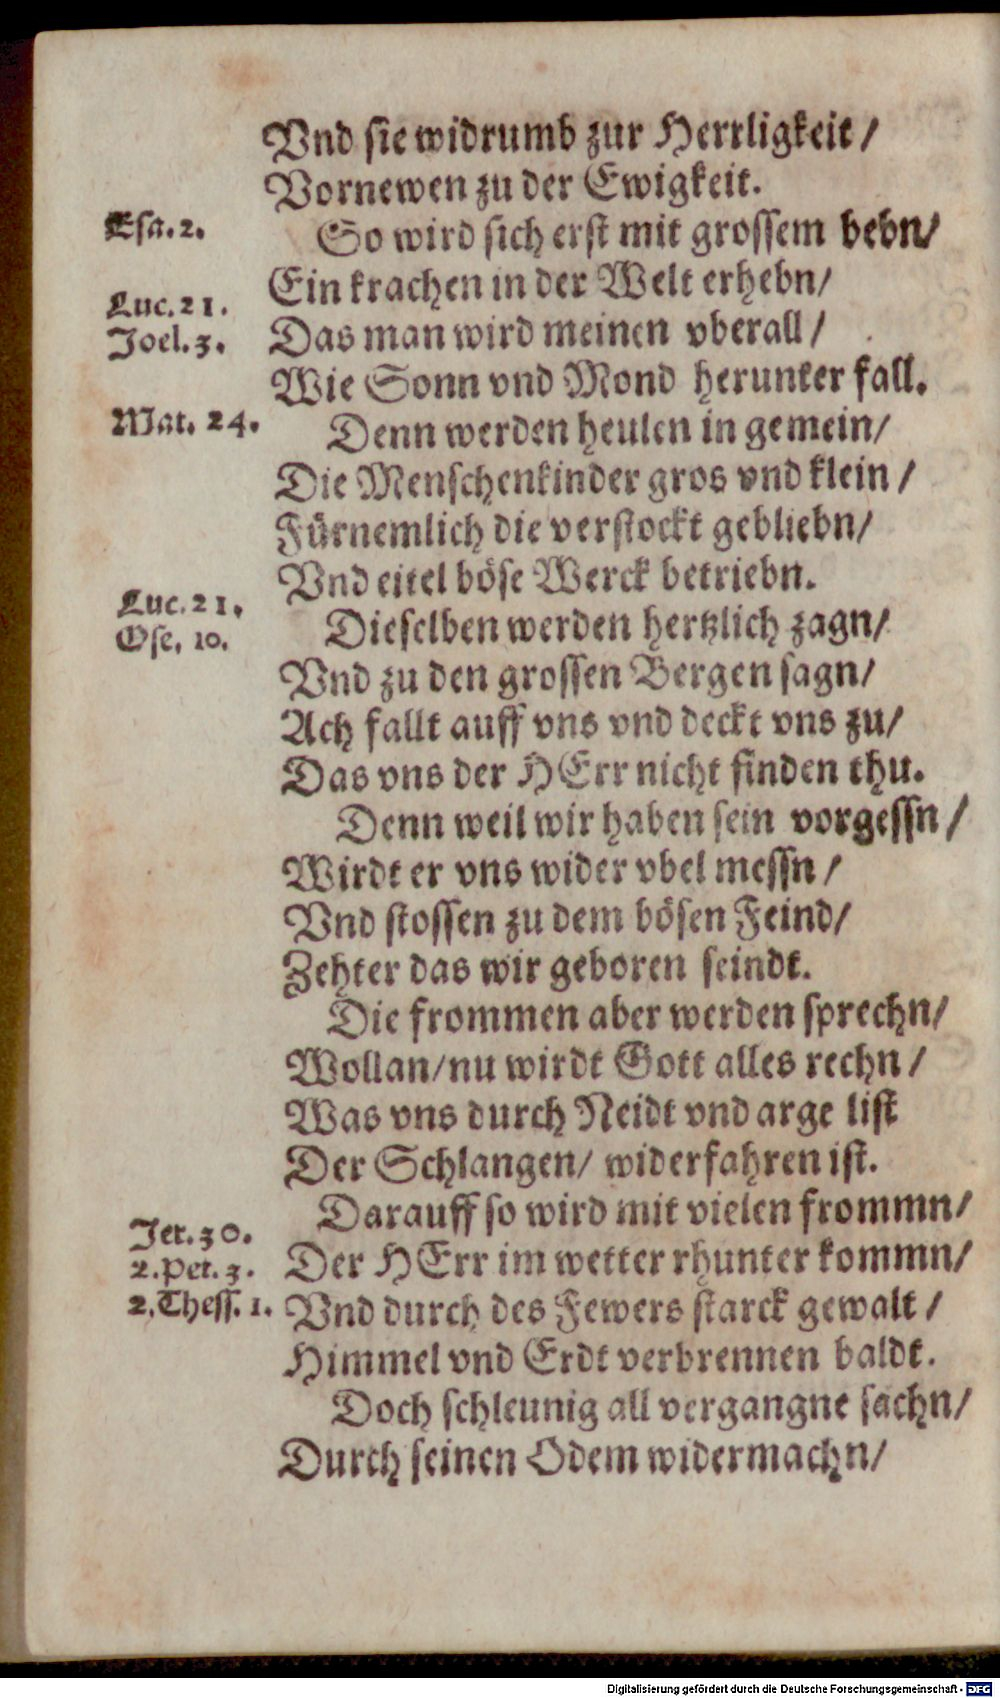 Vnd sie widrumb zur Herrligkeit /
Vornewen zu der Ewigkeit.
Esa. 2.
So wird sich erst mit grossem bebn/
Ein krachen in der Welt erhebn/
Luc. 21.
Das man wird meinen vberall /
Joel. 3.
Wie Sonn vnd Mond herunter fall.
Mat. 24.
Denn werden heulen in gemein/
Die Menschenkinder gros vnd klein /
Fürnemlich die verstockt gebliebn/
Vnd eitel böse Werck betriebn.
Luc. 21.
Dieselben werden hertzlich zagn/
Ose. 10.
Vnd zu den grossen Bergen sagn/
Ach fallt auff vns vnd deckt vns zu/
Das vns der HErr nicht finden thu.
Denn weil wir haben sein vorgessn /
Wirdt er vns wider vbel messn /
Vnd stossen zu dem bösen Feind/
Zehter das wir geboren seindt.
Die frommen aber werden sprechn/
Wollan/nu wirdt Gott alles rechn /
Was vns durch Neidt vnd arge list
Der Schlangen/ widerfahren ist.
Darauff so wird mit vielen frommn/
Jer. 30.
Der HErr im wetter rhunter kommn/
2. Pet. 3.
Vnd durch des Fewers starck gewalt /
2. Thess. 1.
Himmel vnd Erdt verbrennen baldt.
Doch schleunig all vergangne sachn/
Durch seinen Odem widermachn/
Digitalisierung gefördert durch die Deutsche Forschungsgemeinschaft - DFG